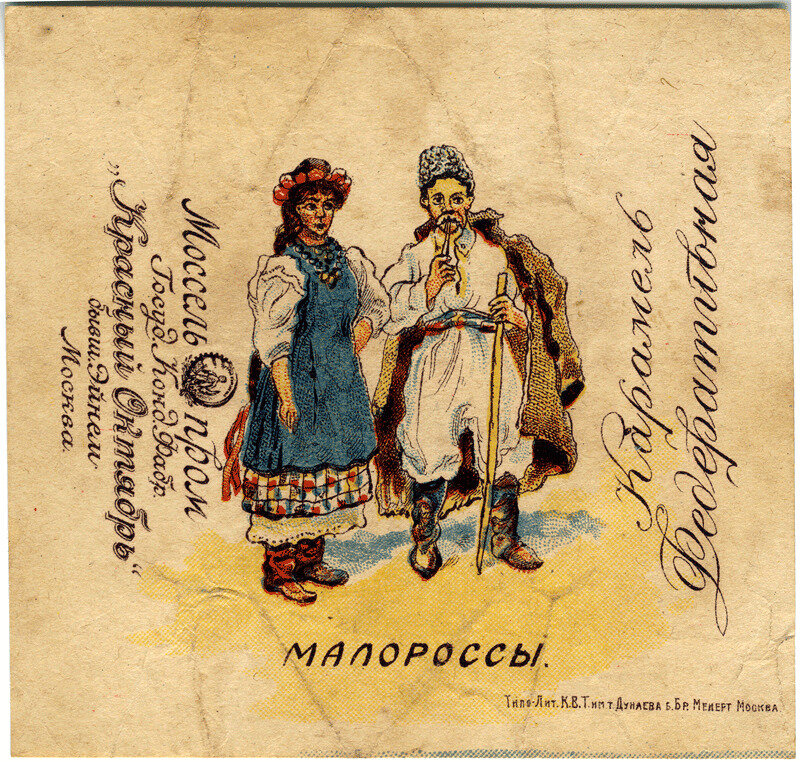 Моссельпром
Госуд. Конд. Фабр.
„Красный Октябрь“
бывш. Эйнем
Москва.
Карамель
Федеративная
МАЛОРОССЫ.
Типо-Лит. К.В.Т. им т. Дунаева б. Бр. Менерт Москва